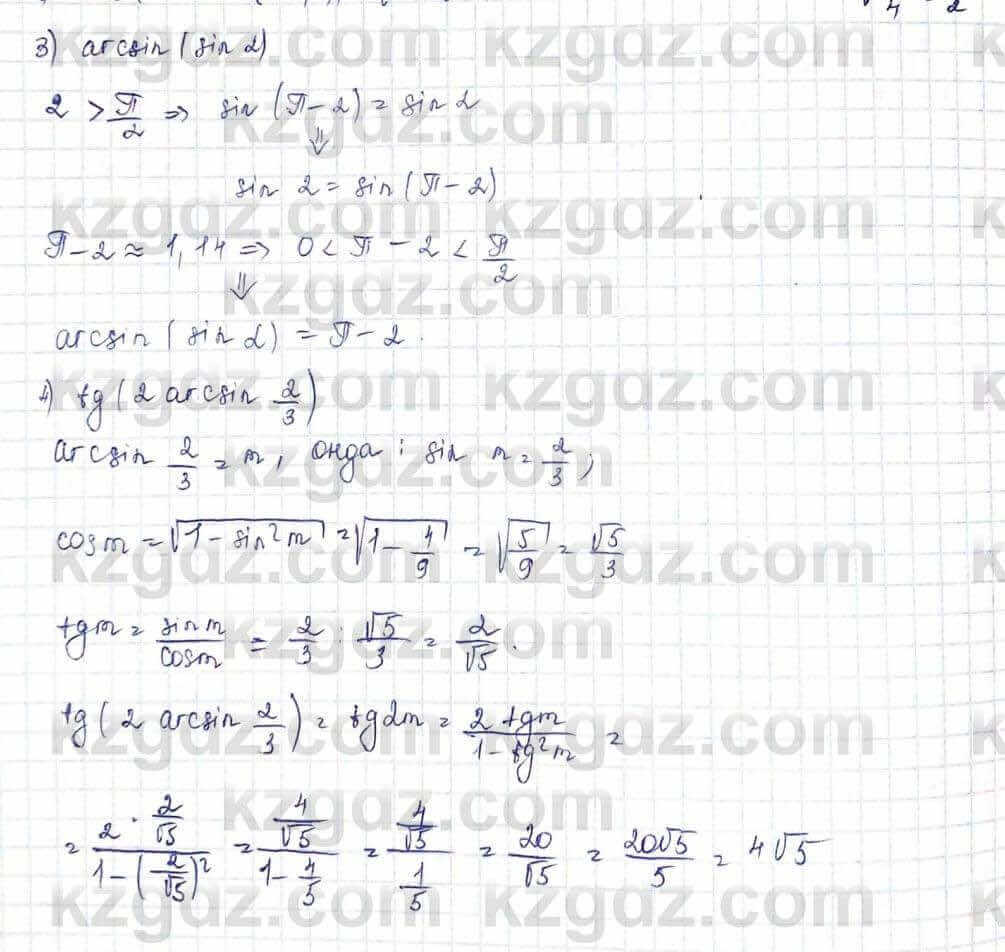 4 2
3) arcsin (sin 2)
2 > π/2 ⇒ sin (π − 2) = sin 2
⇓
sin 2 = sin (π − 2)
π − 2 ≈ 1,14 ⇒ 0 < π − 2 < π/2
⇓
arcsin (sin 2) = π − 2.
4) tg (2 arcsin 2/3)
arcsin 2/3 = m, онда: sin m = 2/3;
cos m = √(1 − sin²m) = √(1 − 4/9) = √(5/9) = √5/3
tg m = sin m/cos m = 2/3 : √5/3 = 2/√5.
tg (2 arcsin 2/3) = tg 2m = 2 tg m/(1 − tg²m) =
= (2 · 2/√5)/(1 − (2/√5)²) = (4/√5)/(1 − 4/5) = (4/√5)/(1/5) = 20/√5 = 20√5/5 = 4√5
kzgdz.com